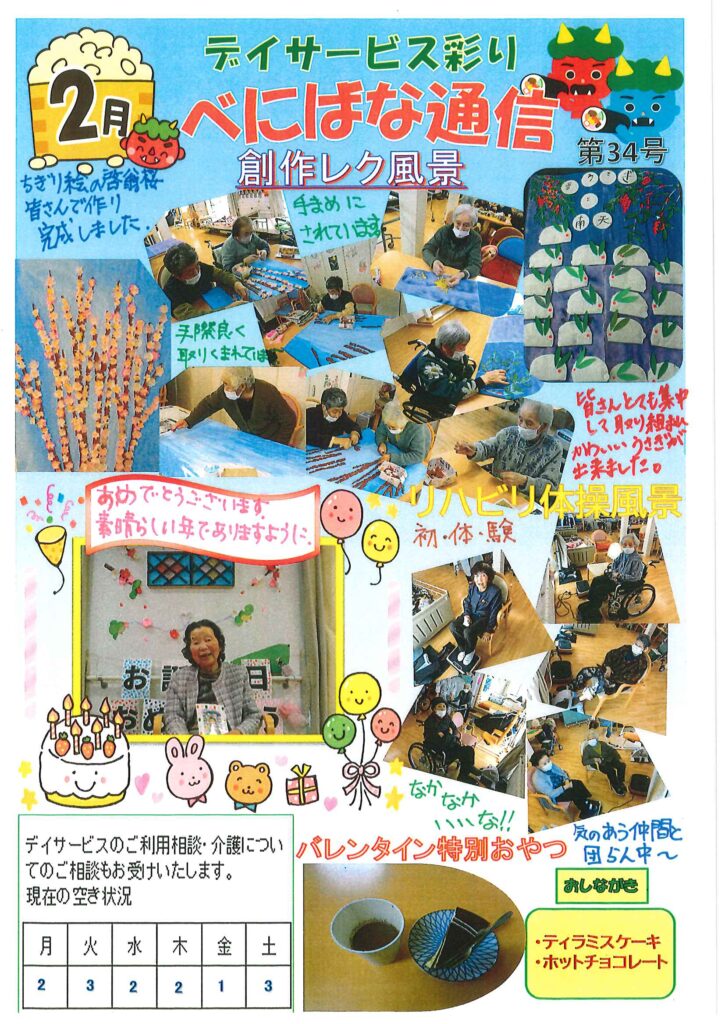 2月
デイサービス彩り
べにばな通信
創作レク風景
第34号
ちぎり絵の啓翁桜
皆さんで作り
完成しました。
手まめに
されています。
手際良く
取りくまれてい
南天
皆さんとても集中
して取り組まれ
かわいいうさぎが
出来ました。
あめでとうございます。
素晴らしい年でありますように。
リハビリ体操風景
初・体・験
なかなか
いいな!!
気のあう仲間と
団らん中〜
デイサービスのご利用相談・介護につい
てのご相談もお受けいたします。
現在の空き状況
月 火 水 木 金 土
2 3 2 2 1 3
バレンタイン特別おやつ
おしながき
・ティラミスケーキ
・ホットチョコレート